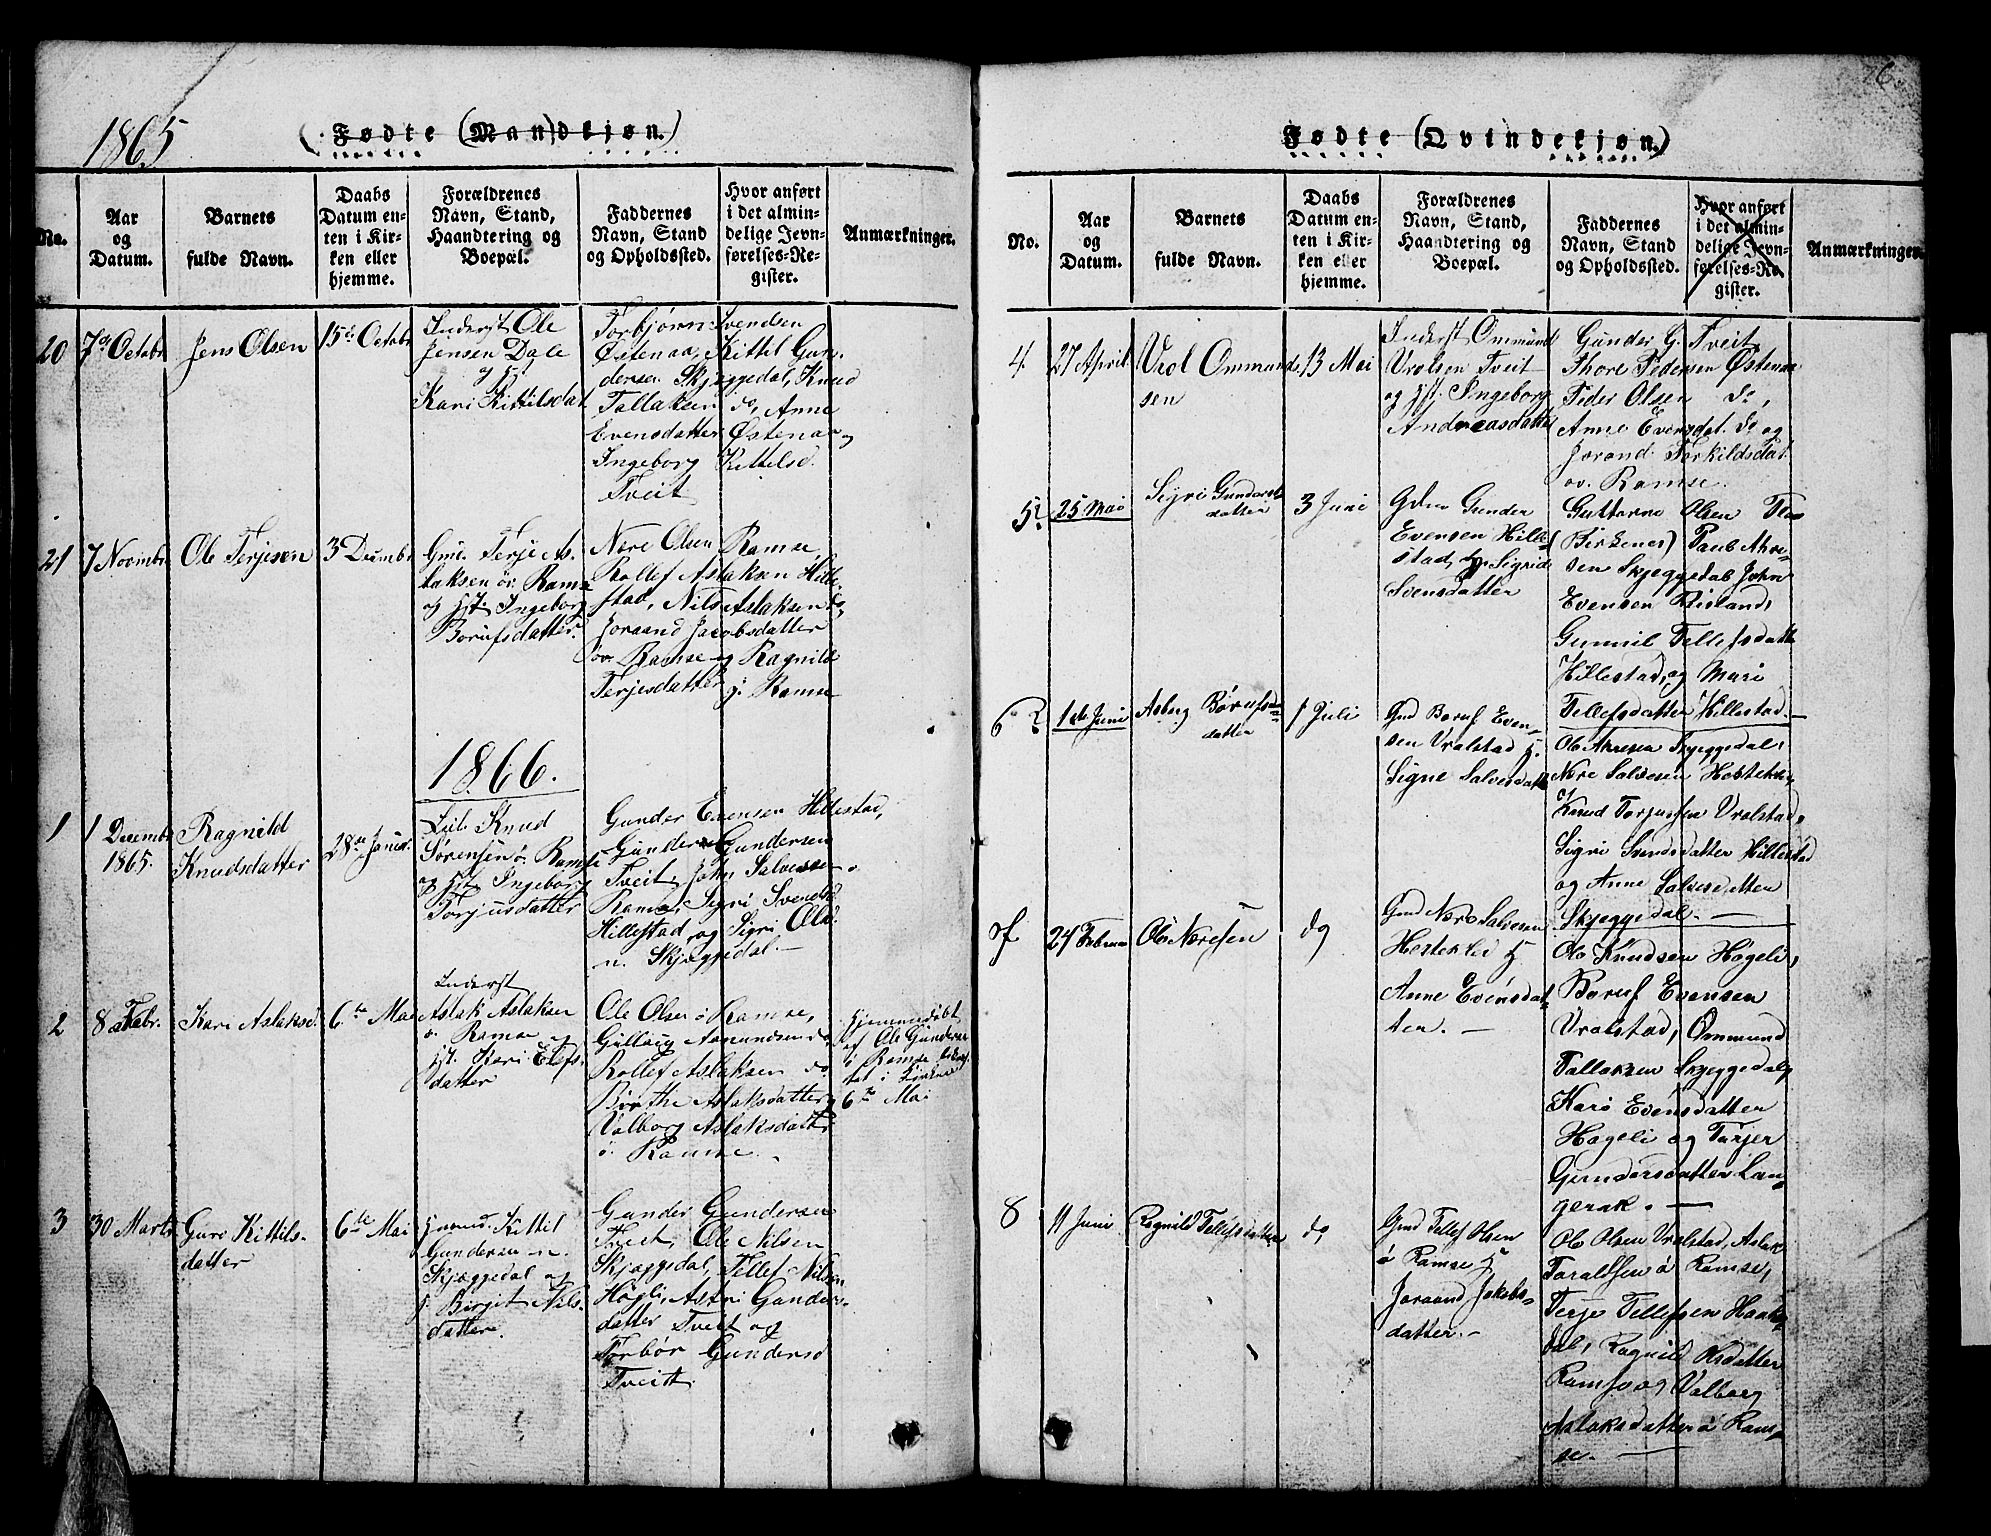 1865
Fødte (Mandkjøn.)
No.
Aar
og
Datum.
Barnets
fulde Navn.
Daabs
Datum en-
ten i Kir-
ken eller
hjemme.
Forældrenes
Navn, Stand,
Haandtering og
Boepæl.
Faddernes
Navn, Stand
og Opholdssted.
Hvor anført
i det almin-
delige Jevn-
førelses-Re-
gister.
Anmærkninger.
20
7de Octobr
Jens Olsen
15de Octobr
Inderst Ole
Jensen Dale
og H.
Kari Kittilsdat
Torbjørn Svendsen
Østenaa, Kittil Gun-
dersen Skjeggedal, Knud
Tallaksen do, Anne
Evensdatter Østenaa og
Ingeborg Kittelsd.
Tveit
21
7 Novmbr
Ole Terjesen
3 Decmbr
Gmd. Terje As-
laksen ov. Ramse
og Hst. Ingeborg
Borufsdatter
Nere Olsen Ramse,
Rollef Aslaksen Hille-
stad, Nils Aslaksen do,
Joraand Jacobsdatter
ov. Ramse og Ragnild
Terjesdatter y. Ramse
1866.
1
1 Decembr
1865.
Ragnild
Knudsdatter
28de Januar
Knud
Sørensen ø. Ramse
og Hst. Ingeborg
Torjusdatter
Gunder Evensen Hillestad,
Gunder Gundersen
Tveit, John Salvesen
Ramse, Sigri Svensd
Hillestad og Sigri Olsd.
n. Skjeggedal. —
2
8de Febr.
Kari Aslaksd.
6te Mai
Inderst
Aslak Aslaksen
ø Ramse og
Hst. Kari Olefs-
datter
Ole Olsen ø Ramse,
Gullaug Asmundsen do
Rollef Aslaksen do
Birthe Aslaksdatter og
Valborg Aslaksdatter
ø. Ramse.
Hjemmedøbt
af Ole Gundersen
ø Ramse
i Kirken
6te Mai
3
30 Marts
Guro Kittils-
datter
6te Mai
Kittil
Gundersen n.
Skjæggedal og
H. Birgit Nils-
datter.
Gunder Gundersen
Tveit, Ole Nilsen
Skjæggedal, Tellef Nilsen
Høgli, Astri Gunders-
datter Tveit og
Torbør Gundersd
Tveit.
76
Fødte (Qvindekjøn.)
No.
Aar
og
Datum.
Barnets
fulde Navn.
Daabs
Datum en-
ten i Kir-
ken eller
hjemme.
Forældrenes
Navn, Stand,
Haandtering og
Boepæl.
Faddernes
Navn, Stand
og Opholdssted.
Hvor anført
i det almin-
delige Jevn-
førelses-Re-
gister.
Anmærkninger.
4
27 April
Vrol Ommunds-
sen
13 Mai
Inderst Ommund
Vrolsen Tveit
og Hst. Ingeborg
Andreasdatter
Gunder G. Tveit
Thore Pedersen Østenaa
Peder Olsen do,
Anne Evensdat. do og
Jorand Torkildsdat
ov. Ramse.
5
25 Mai
Sigri Gunders-
datter
3 Juni
Gunder
Evensen Hille-
stad, H. Sigrid
Svensdatter
Guttorm Olsen
(Birkenes)
Skjeggedal John
Evensen Risland,
Gunnil Tellefsdatt
Hillestad, og Mari
Tellefsdatter Hillestad. —
6
1de Juni
Asberg Børufs-
datter
1 Juli
Gmd Boruf Even-
sen Vralstad H.
Signe Salvesdatt
Skjeggedal,
Nere Salvesen Hestekle,
Knud Torjussen Vralstad,
Sigri Svendsdatter Hillestad
og Anne Salvesdatter
Skjeggedal. —
7
24 Februar
Ole Neresen
do
Gmd Nere Salvesen
Hestekle H
Anne Evensdat-
ter. —
Ole Knudsen Høgeli,
Boruf Evensen
Vralstad, Ommund
Tallaksen Skjeggedal,
Kari Evensdatter
Høgeli og Torjer
Gundersdatter Lan-
gerak. —
8
11 Juni
Ragnild Tellefsdatter
do
Gmd Tellef Olsen
ø Ramse H
Joraand Jakobs-
datter. —
Ole Olsen Vralstad, Aslak
Taraldsen ø Ramse,
Terje Tellefsen Haak-
dal, Ragnild
Ramse og Valborg
Aslaksdatter ø Ram-
se. —